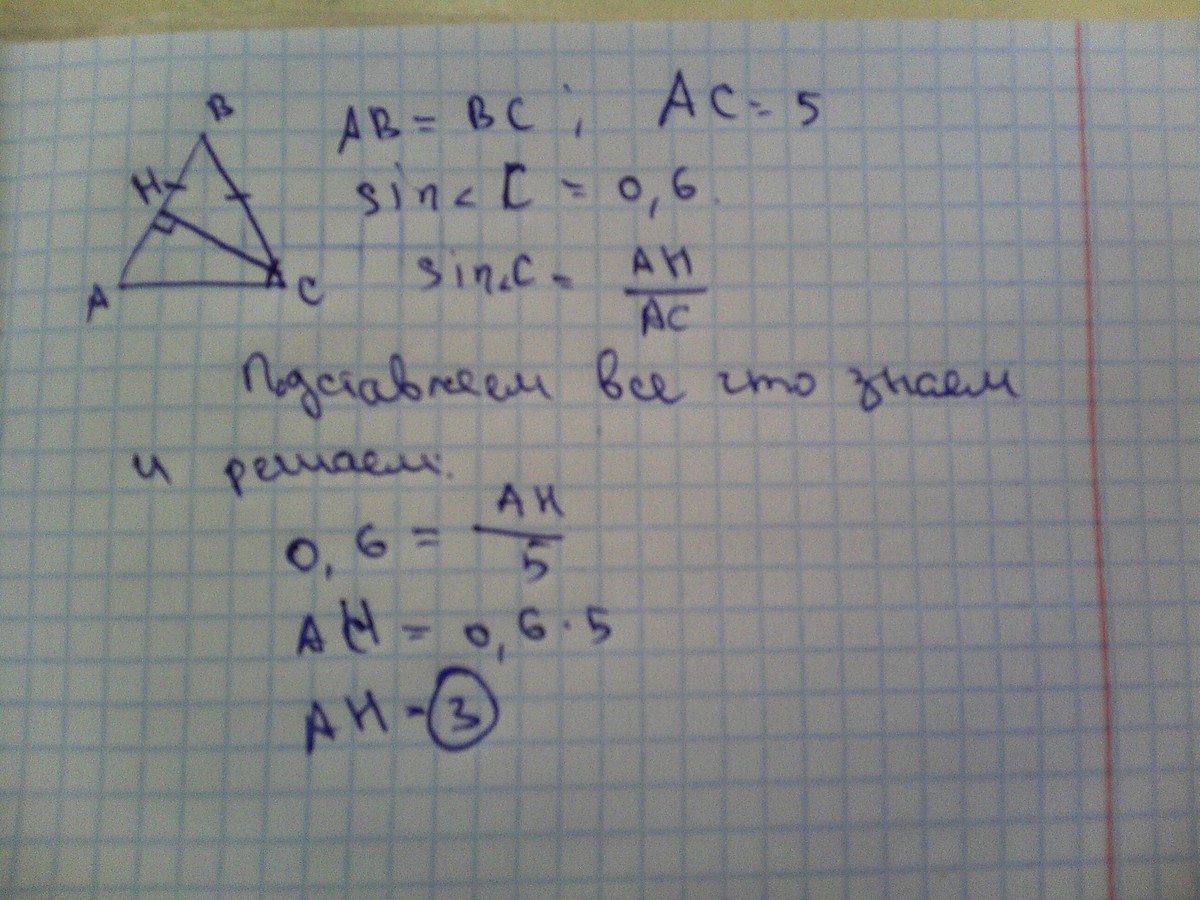 B
H
A
C
AB = BC ; AC = 5
sin∠ C = 0,6.
sin∠C = AH/AC
Подставляем все что знаем
и решаем:
0,6 = AH/5
AH = 0,6·5
AH = 3